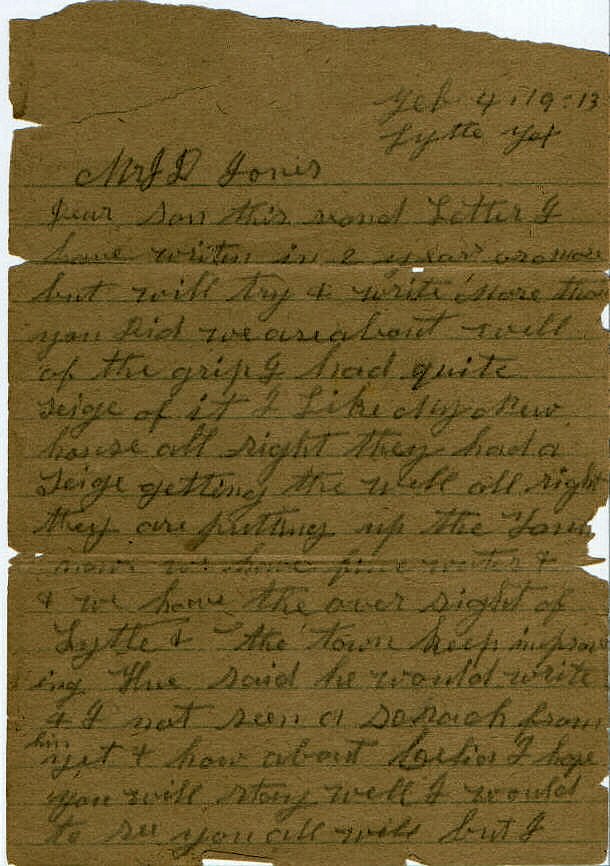 Feb 4, 19-13
Lytte Tex
Mr J D Jones
Dear son this second Letter I
have writen in 2 year or more
but will try & write more than
you Did we are about well
of the grip I had quite
seige of it I Like My New
house all right they had a
Seige getting the well all right
they are putting up the
now we have fine water &
& we have the over sight of
Lytte & the town keep improv
ing Hue said he would write
& I not seen a scrach from
him yet & how about I hope
you will stay well I would
to see you all well but I